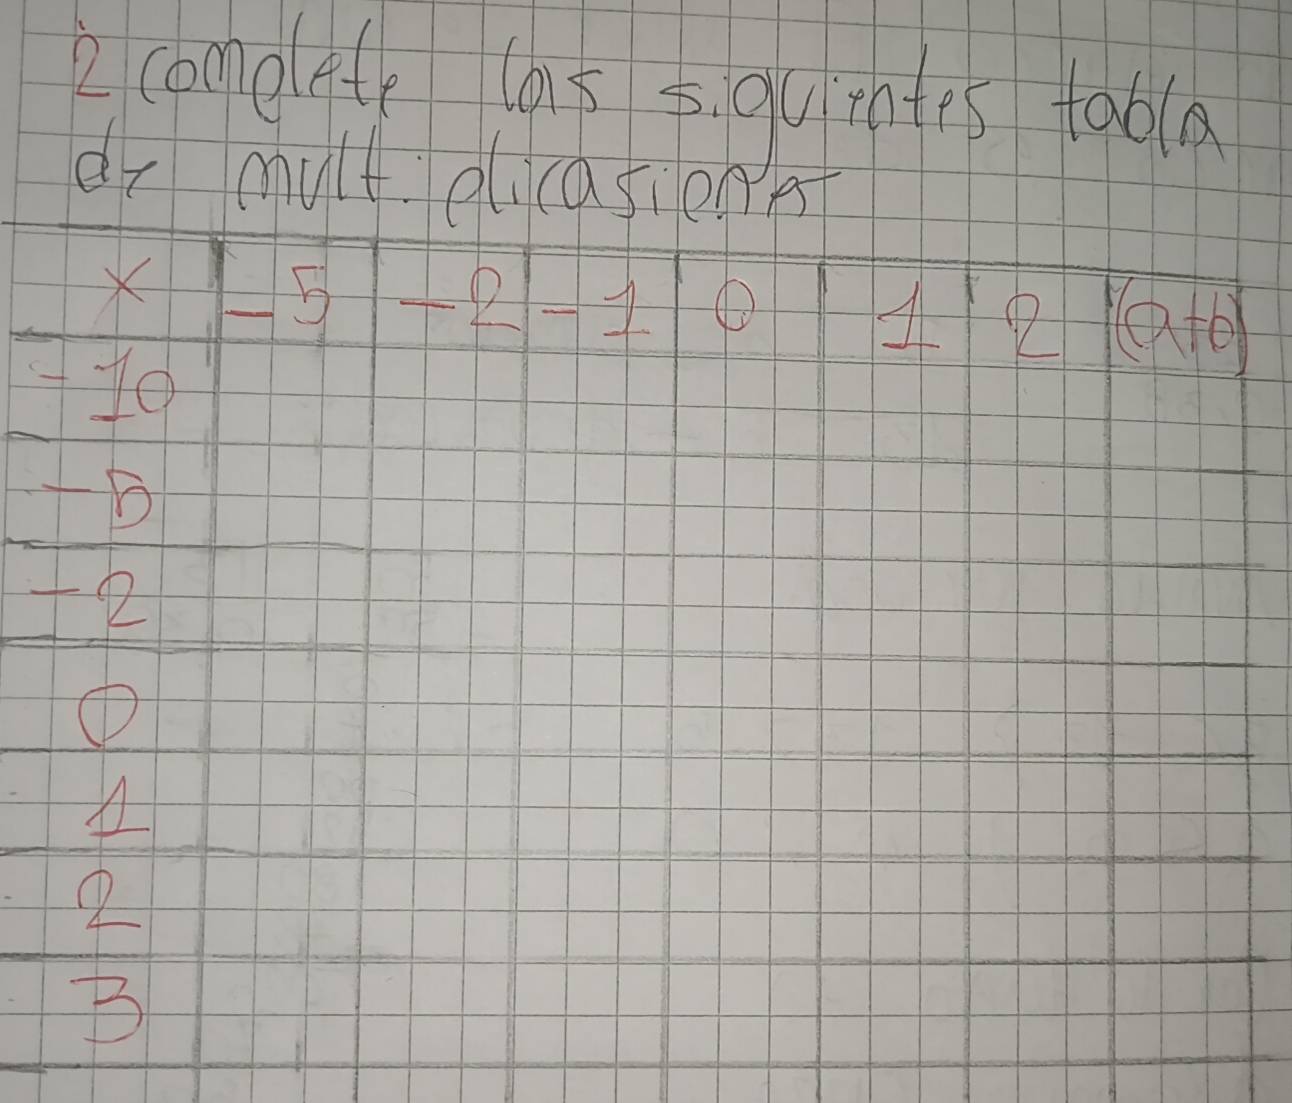 2 complete las siguientes tabla
de multiplicasiones
x -5 -2 -1 0 1 2 (a+b)
-10
-5
-2
0
1
2
3